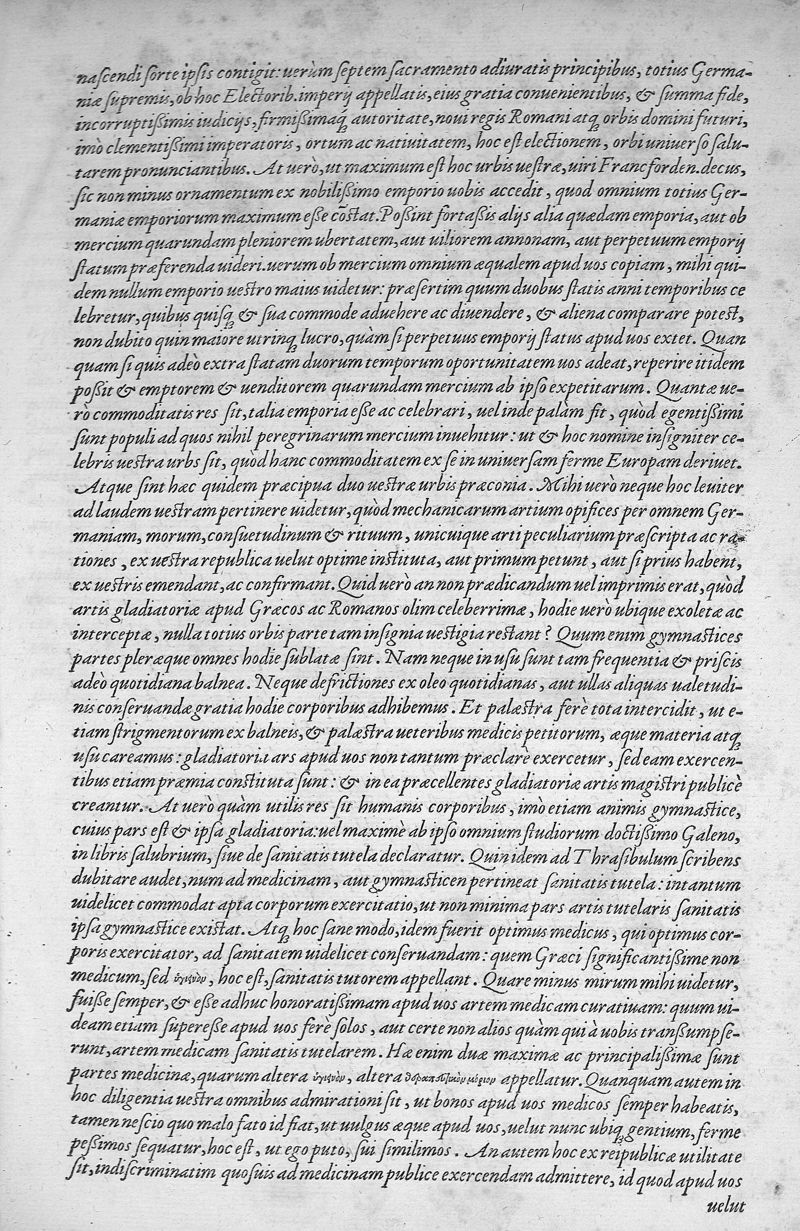 nascendi sorte ipsis contigit: uerùm septem sacramento adiuratis principibus, totius Germa-
niæ supremis, ob hoc Electorib. imperij appellatis, eius gratia conuenientibus, & summa fide,
incorruptißimis iudicijs, firmißimaq́; autoritate, noui regis Romani atq; orbis domini futuri,
imò clementißimi imperatoris, ortum ac natiuitatem, hoc est electionem, orbi uniuerso salu-
tarem pronunciantibus. At uerò, ut maximum est hoc urbis uestræ, uiri Francforden. decus,
sic non minus ornamentum ex nobilißimo emporio uobis accedit, quod omnium totius Ger-
maniæ emporiorum maximum eße cõstat. Poßint fortaßis alijs alia quædam emporia, aut ob
mercium quarundam pleniorem ubertatem, aut uiliorem annonam, aut perpetuum emporij
statum præferenda uideri. uerum ob mercium omnium æqualem apud uos copiam, mihi qui-
dem nullum emporio uestro maius uidetur: præsertim quum duobus statis anni temporibus ce
lebretur, quibus quisq; & sua commode aduehere ac diuendere, & aliena comparare potest,
non dubito quin maiore utrinq; lucro, quàm si perpetuus emporij status apud uos extet. Quan
quam si quis adeò extra statam duorum temporum oportunitatem uos adeat, reperire itidem
poßit & emptorem & uenditorem quarundam mercium ab ipso expetitarum. Quantæ ue-
rò commoditatis res sit, talia emporia eße ac celebrari, uel inde palàm fit, quòd egentißimi
sunt populi ad quos nihil peregrinarum mercium inuehitur: ut & hoc nomine insigniter ce-
lebris uestra urbs sit, quòd hanc commoditatem ex se in uniuersam ferme Europam deriuet.
Atque sint hæc quidem præcipua duo uestræ urbis præconia. Mihi uerò neque hoc leuiter
ad laudem uestram pertinere uidetur, quòd mechanicarum artium opifices per omnem Ger-
maniam, morum, consuetudinum & rituum, unicuique arti peculiarium præscripta ac ra-
tiones, ex uestra republica uelut optime instituta, aut primum petunt, aut si prius habent,
ex uestris emendant, ac confirmant. Quid uerò an non prædicandum uel imprimis erat, quòd
artis gladiatoriæ apud Græcos ac Romanos olim celeberrimæ, hodie uerò ubique exoletæ ac
interceptæ, nulla totius orbis parte tam insignia uestigia restant? Quum enim gymnastices
partes pleræque omnes hodie sublatæ sint. Nam neque in usu sunt tam frequentia & priscis
adeò quotidiana balnea. Neque defrictiones ex oleo quotidianas, aut ullas aliquas ualetudi-
nis conseruandæ gratia hodie corporibus adhibemus. Et palæstra ferè tota intercidit, ut e-
tiam strigmentorum ex balneis, & palæstra ueteribus medicis petitorum, æque materia atq;
usu careamus: gladiatoria ars apud uos non tantum præclarè exercetur, sed eam exercen-
tibus etiam præmia constituta sunt: & in ea præcellentes gladiatoriæ artis magistri publicè
creantur. At uerò quàm utilis res sit humanis corporibus, imò etiam animis gymnastice,
cuius pars est & ipsa gladiatoria: uel maximè ab ipso omnium studiorum doctißimo Galeno,
in libris salubrium, siue de sanitatis tutela declaratur. Quin idem ad Thrasibulum scribens
dubitare audet, num ad medicinam, aut gymnasticen pertineat sanitatis tutela: in tantum
uidelicet commodat apta corporum exercitatio, ut non minima pars artis tutelaris sanitatis
ipsa gymnastice existat. Atq; hoc sane modo, idem fuerit optimus medicus, qui optimus cor-
poris exercitator, ad sanitatem uidelicet conseruandam: quem Græci significantißime non
medicum, sed ὑγιεινὸν, hoc est, sanitatis tutorem appellant. Quare minus mirum mihi uidetur,
fuiße semper, & eße adhuc honoratißimam apud uos artem medicam curatiuam: quum ui-
deam etiam supereße apud uos ferè solos, aut certe non alios quàm qui à uobis transumpse-
runt, artem medicam sanitatis tutelarem. Hæ enim duæ maximæ ac principalißimæ sunt
partes medicinæ, quarum altera ὑγιεινὸν, altera θεραπευτικὸν μόριον appellatur. Quanquam autem in
hoc diligentia uestra omnibus admirationi sit, ut bonos apud uos medicos semper habeatis,
tamen nescio quo malo fato id fiat, ut uulgus æque apud uos, uelut nunc ubiq; gentium, ferme
peßimos sequatur, hoc est, ut ego puto, sui similimos. An autem hoc ex reipublicæ utilitate
sit, indiscriminatim quosuis ad medicinam publice exercendam admittere, id quod apud uos
uelut